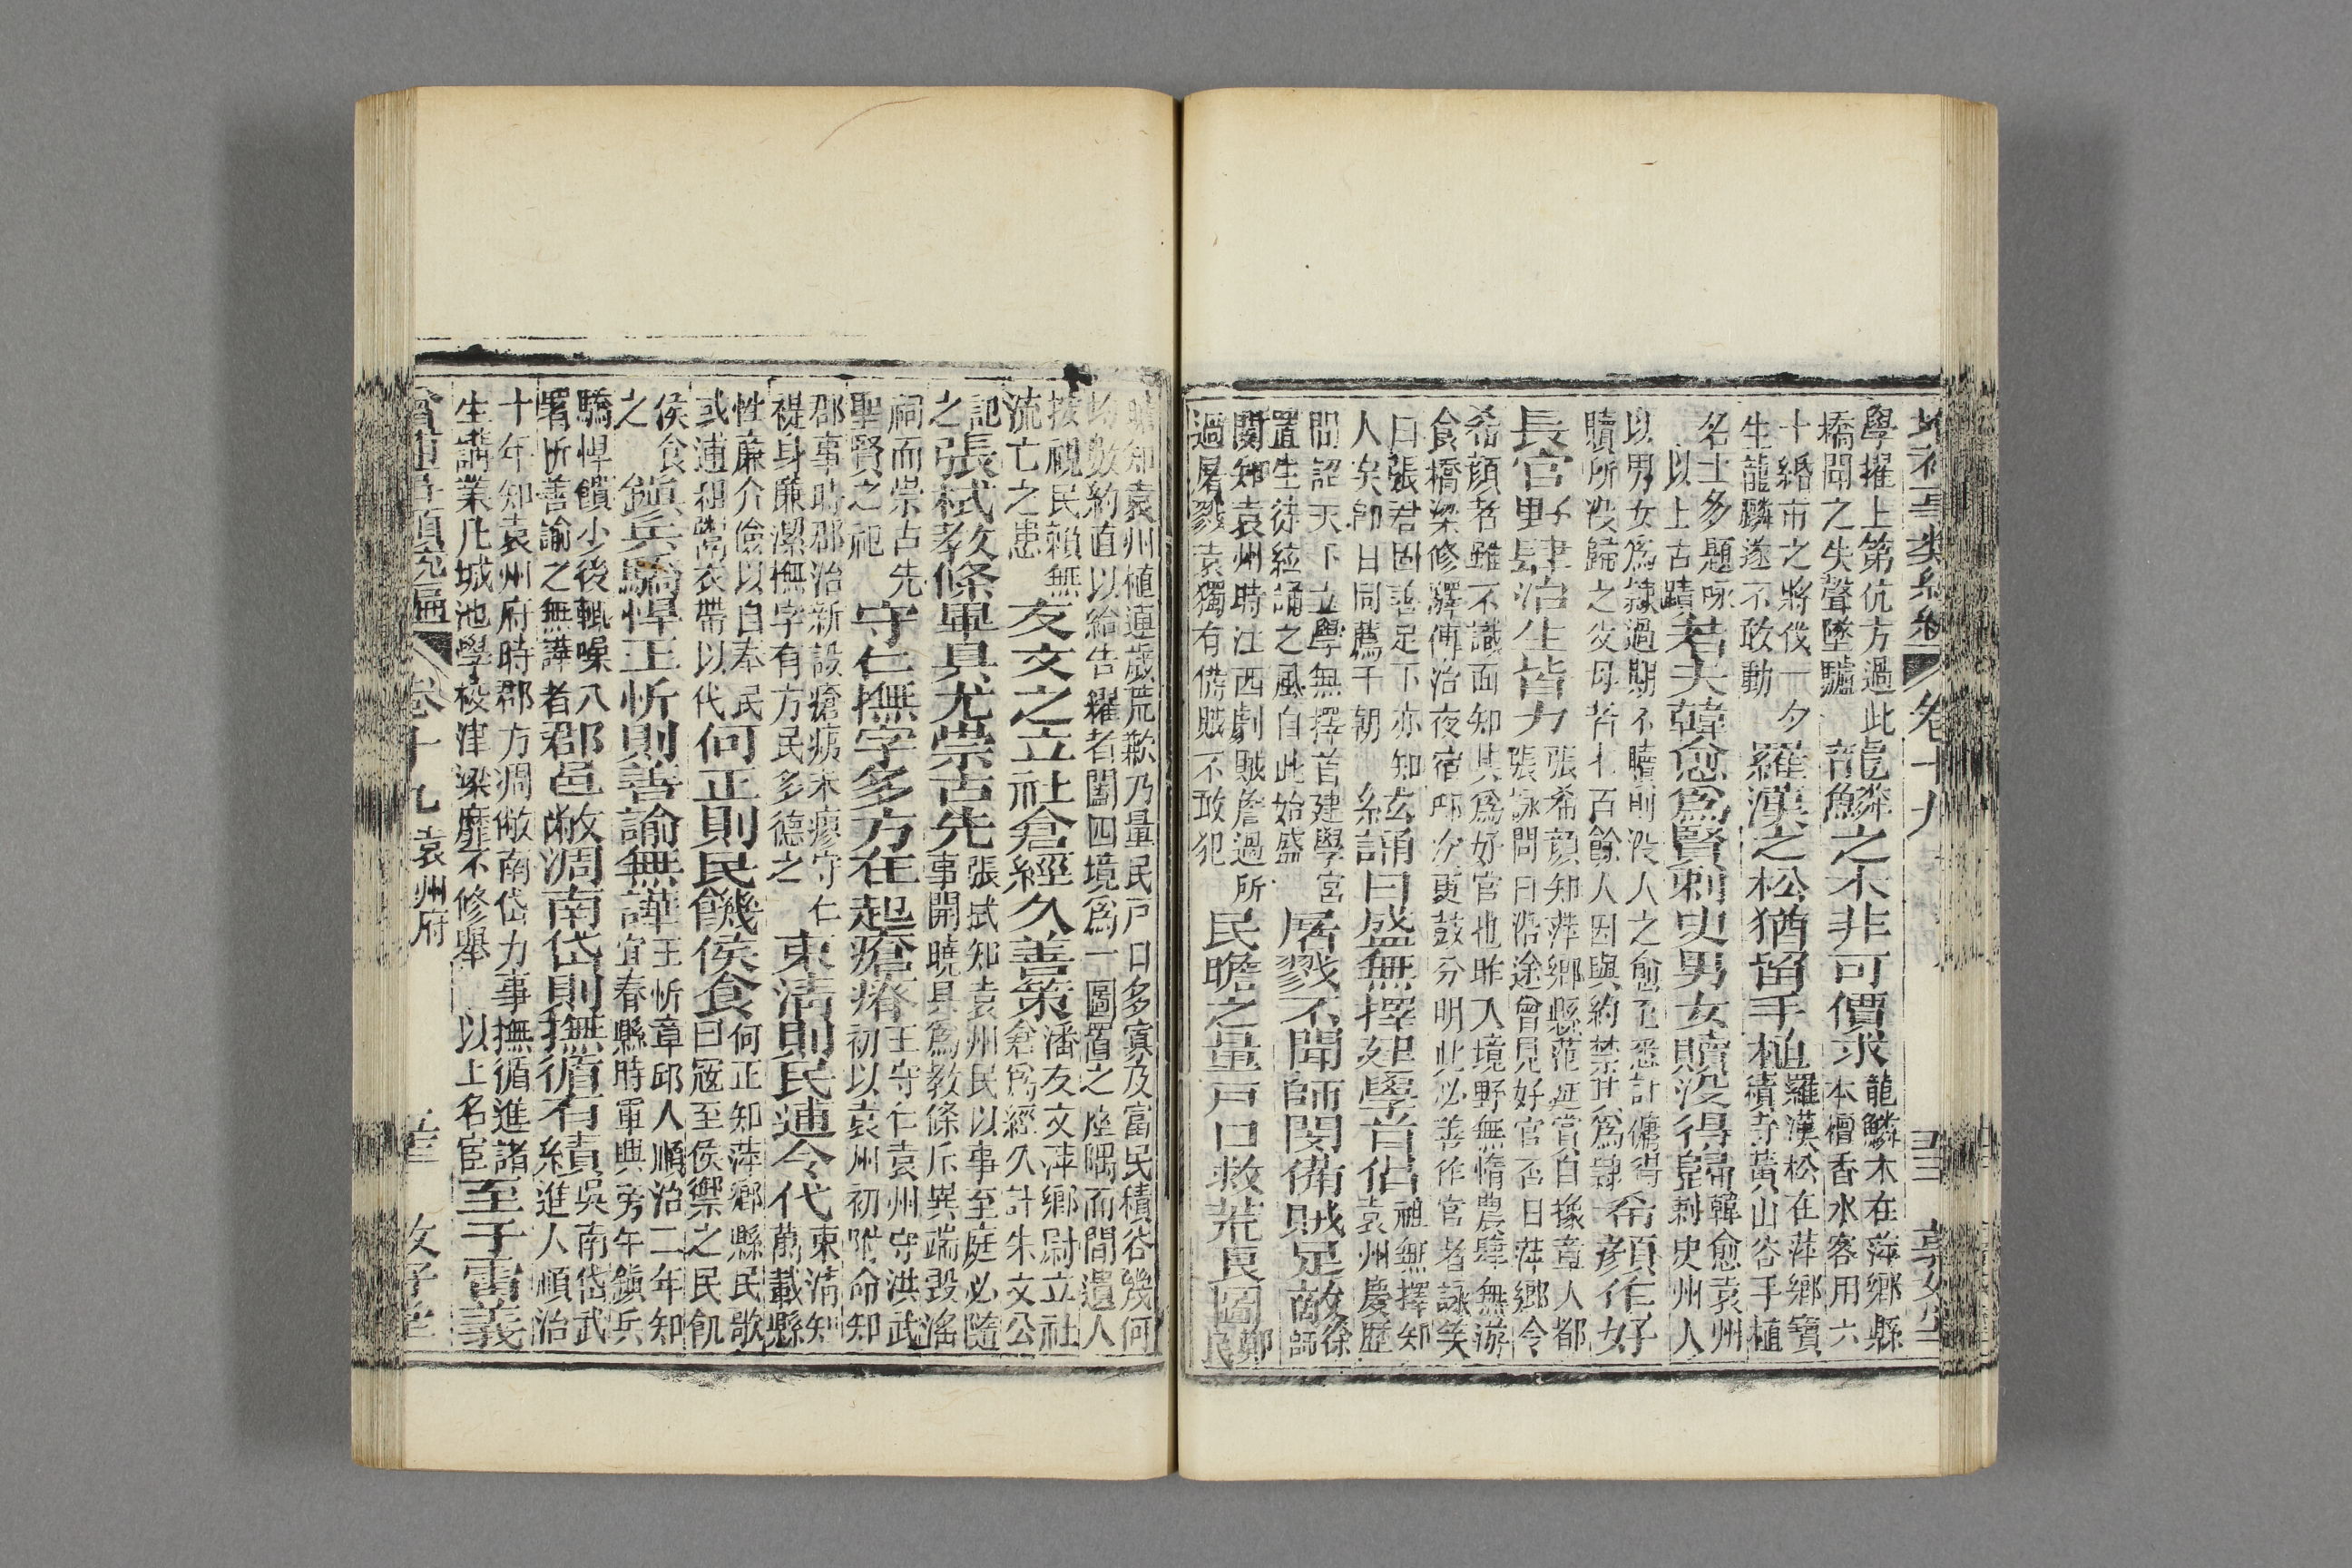 卷十九
學擢上第伉方過此
橋聞之失聲墜驢
龍鱗之木非可價求
龍鱗木在萍鄉縣
本檀香水客用六
十緡市之將伐一夕
生龍麟遂不敢動
羅漢之松猶留手植
羅漢松在萍鄉寶
積寺黃山谷手植
名士多題咏
以上古蹟
若夫韓愈爲賢刺史男女贖沒得歸
韓愈袁州
刺史州人
以男女爲隸過期不贖則沒入之愈至悉計傭得
贖所沒歸之父母者七百餘人因與約禁其爲隸
希顏作好
長官野與肆治生皆力
張希顏知萍鄉縣范延賞自豫章入都
張詠問曰沿途曾見好官否曰萍鄉令
希顏者雖不識面知其爲好官也昨入境野無惰農肆無游
食橋梁修驛傳治夜宿邸次更鼓分明此必善作官者詠笑
曰張君固善足下亦知
人矣即日同薦于朝
絃誦曰盛無擇建學首倡
祖無擇知
袁州慶歷
間詔天下立學無擇首建學宮
置生徒絃誦之風自此始盛
屠戮不聞師閔備賊足敵
徐
師
閔知袁州時江西劇賊詹過所
過屠戮袁獨有備賊不敢犯
民瞻之量戸口救荒良圖
鄭
民
瞻知袁州値連歲荒歉乃量民戸口多寡及富民積谷幾何
均敷約直以給告糴者闔四境爲一圖置之座隅而間遣人
按視民賴無
流亡之患
友文之立社倉經久善策
潘友文萍鄉尉立社
倉爲經久計朱文公
記
之
張栻敎條畢具尤崇古先
張栻知袁州民以事至庭必隨
事開曉具爲教條斥異端毀淫
祠而崇古先
聖賢之祀
守仁撫字多方在起瘡瘠
王守仁袁州守洪武
初以袁州初附命知
郡事時郡治新設瘡痍未瘳守仁
禔身廉潔撫字有方民多德之
東清則民逋令代
東清知
萬載縣
性廉介儉以自奉民
或逋租鬻衣帶以代
何正則民饑侯食
何正知萍鄉縣民歌
曰寇至侯禦之民飢
侯食
之
鎮兵驕悍王忻則善諭無譁
王忻章邱人順治二年知
宜春縣時軍興旁午鎮兵
驕悍饋少後輒噪入
署忻善諭之無譁者
郡邑敝凋南岱則撫循有績
吳南岱武
進人順治
十年知袁州府時郡方凋敝南岱力事撫循進諸
生講業凡城池學校津梁靡不修舉
以上名宦
至于雷義
卷十九 袁州府